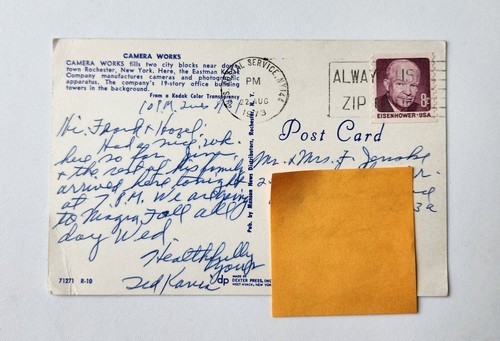 CAMERA WORKS
CAMERA WORKS fills two city blocks near down-
town Rochester, New York. Here, the Eastman Kodak
Company manufactures cameras and photographic
apparatus. The company's 19-story office building
towers in the background.
From a Kodak Color Transparency
10 P.M. Tues
Hi, Frank & Hazel:
Had a nice wk.
here so far. Jim
& the rest of his family
arrived here tonight
at 7 P.M. We are going
to Niagra Fall all
day Wed.
Healthfully
Yours
Ted Karia
71271 R-10
Pub. by Manson News Distributors, Rochester, N. Y.
dp
MADE BY
DEXTER PRESS, INC.
WEST NYACK, NEW YORK
U.S. POSTAL SERVICE, NY 144
PM
22 AUG
1973
ALWAYS USE
ZIP
EISENHOWER·USA
8c
Post Card
Mr. & Mrs. F.